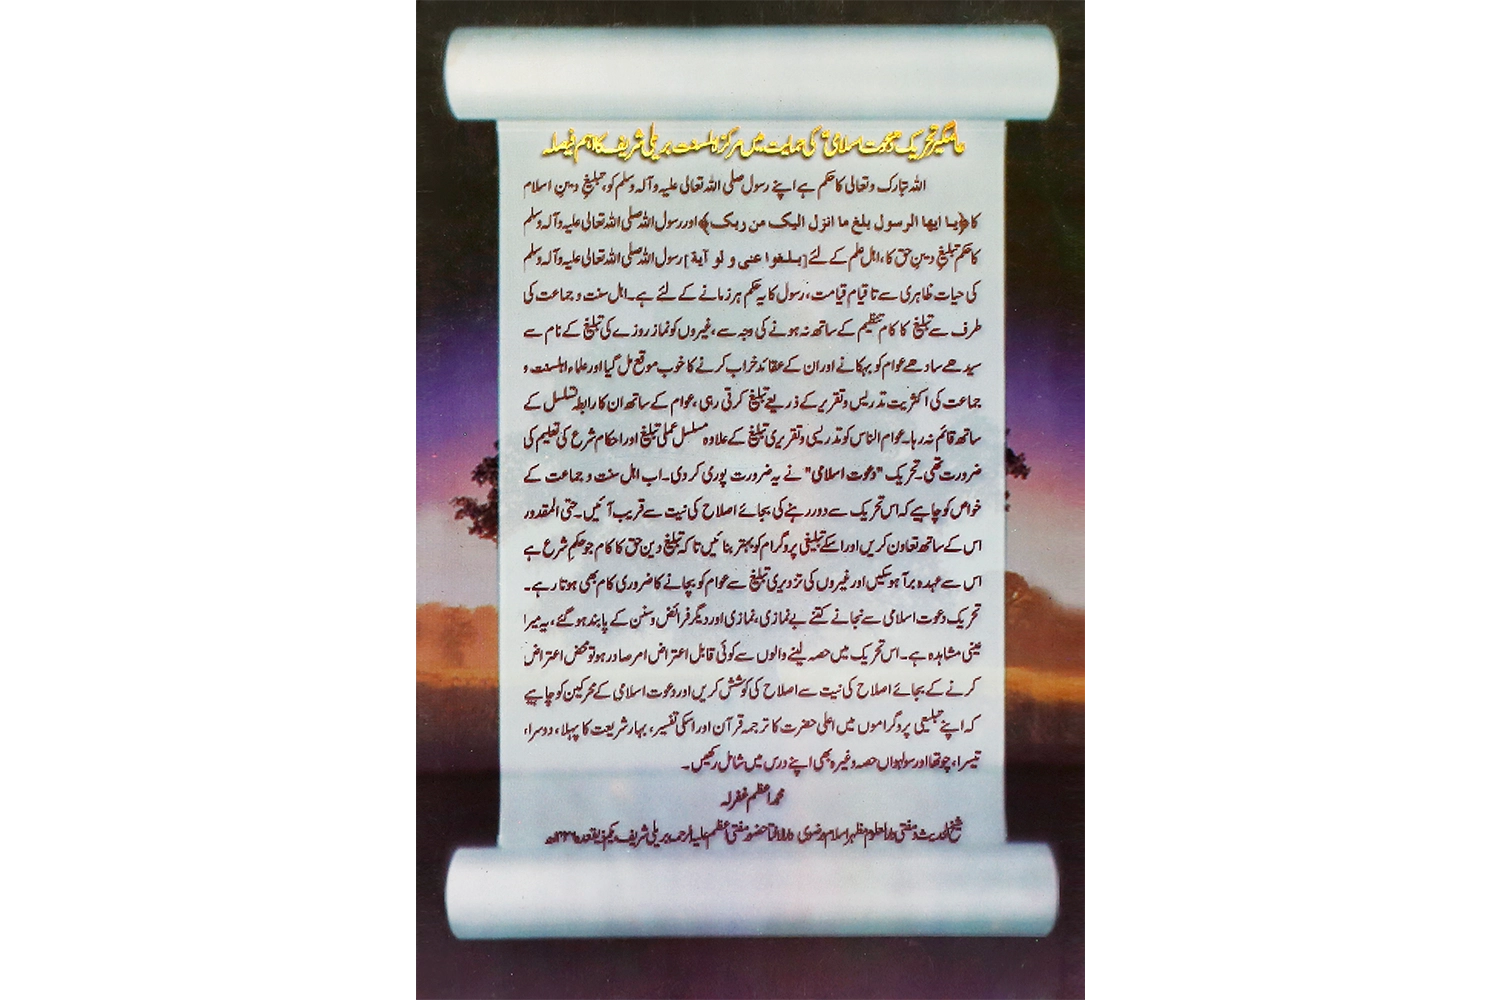 عالمگیر تحریک "دعوت اسلامی" کی حمایت میں مرکز اہلسنت بریلی شریف کا اہم فیصلہ
اللہ تبارک وتعالی کا حکم ہے اپنے رسول صلی اللہ تعالی علیہ وآلہ وسلم کو، تبلیغِ دینِ اسلام
کا ﴿یا ایھا الرسول بلغ ما انزل الیک من ربک﴾ اور رسول اللہ صلی اللہ تعالی علیہ وآلہ وسلم
کا حکم تبلیغِ دینِ حق کا، اہل علم کے لئے [بلغوا عنی و لو آیة] رسول اللہ صلی اللہ تعالی علیہ وآلہ وسلم
کی حیات ظاہری سے تا قیام قیامت، رسول کا یہ حکم ہر زمانے کے لئے ہے۔ اہل سنت و جماعت کی
طرف سے تبلیغ کا کام تنظیم کے ساتھ نہ ہونے کی وجہ سے، غیروں کو نماز روزے کی تبلیغ کے نام سے
سیدھے سادھے عوام کو بہکانے اور ان کے عقائد خراب کرنے کا خوب موقع مل گیا اور علماء اہلسنت و
جماعت کی اکثریت تدریس وتقریر کے ذریعے تبلیغ کرتی رہی، عوام کے ساتھ ان کا رابطہ تسلسل کے
ساتھ قائم نہ رہا۔ عوام الناس کو تدریسی وتقریری تبلیغ کے علاوہ مسلسل عملی تبلیغ اور احکام شرع کی تعلیم کی
ضرورت تھی۔ تحریک "دعوت اسلامی" نے یہ ضرورت پوری کردی۔ اب اہل سنت و جماعت کے
خواص کو چاہیے کہ اس تحریک سے دور رہنے کی بجائے اصلاح کی نیت سے قریب آئیں۔ حتی المقدور
اس کے ساتھ تعاون کریں اور اسکے تبلیغی پروگرام کو بہتر بنائیں تاکہ تبلیغ دین حق کا کام جو حکمِ شرع ہے
اس سے عہدہ برآ ہوسکیں اور غیروں کی تزویری تبلیغ سے عوام کو بچانے کا ضروری کام بھی ہوتا رہے۔
تحریک دعوت اسلامی سے نجانے کتنے بے نمازی، نمازی اور دیگر فرائض وسنن کے پابند ہوگئے، یہ میرا
عینی مشاہدہ ہے۔ اس تحریک میں حصہ لینے والوں سے کوئی قابل اعتراض امر صادر ہو تو محض اعتراض
کرنے کے بجائے اصلاح کی نیت سے اصلاح کی کوشش کریں اور دعوت اسلامی کے محرکین کو چاہیے
کہ اپنے تبلیغی پروگراموں میں اعلی حضرت کا ترجمہ قرآن اور اسکی تفسیر، بہار شریعت کا پہلا، دوسرا،
تیسرا، چوتھا اور سولہواں حصہ وغیرہ بھی اپنے درس میں شامل رکھیں۔
محمد اعظم غفرلہ
شیخ الحدیث و مفتی دارالعلوم مظہر اسلام و رضوی دارالافتا حضور مفتی اعظم علیہ الرحمہ بریلی شریف یکم ذیقعدہ